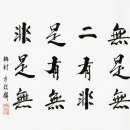 無是無
二有非
是有無
非是無